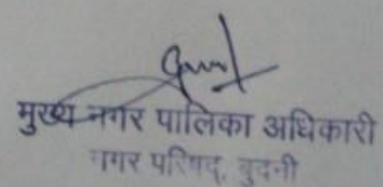 मुख्य नगर पालिका अधिकारी
नगर परिषद, बुदनी